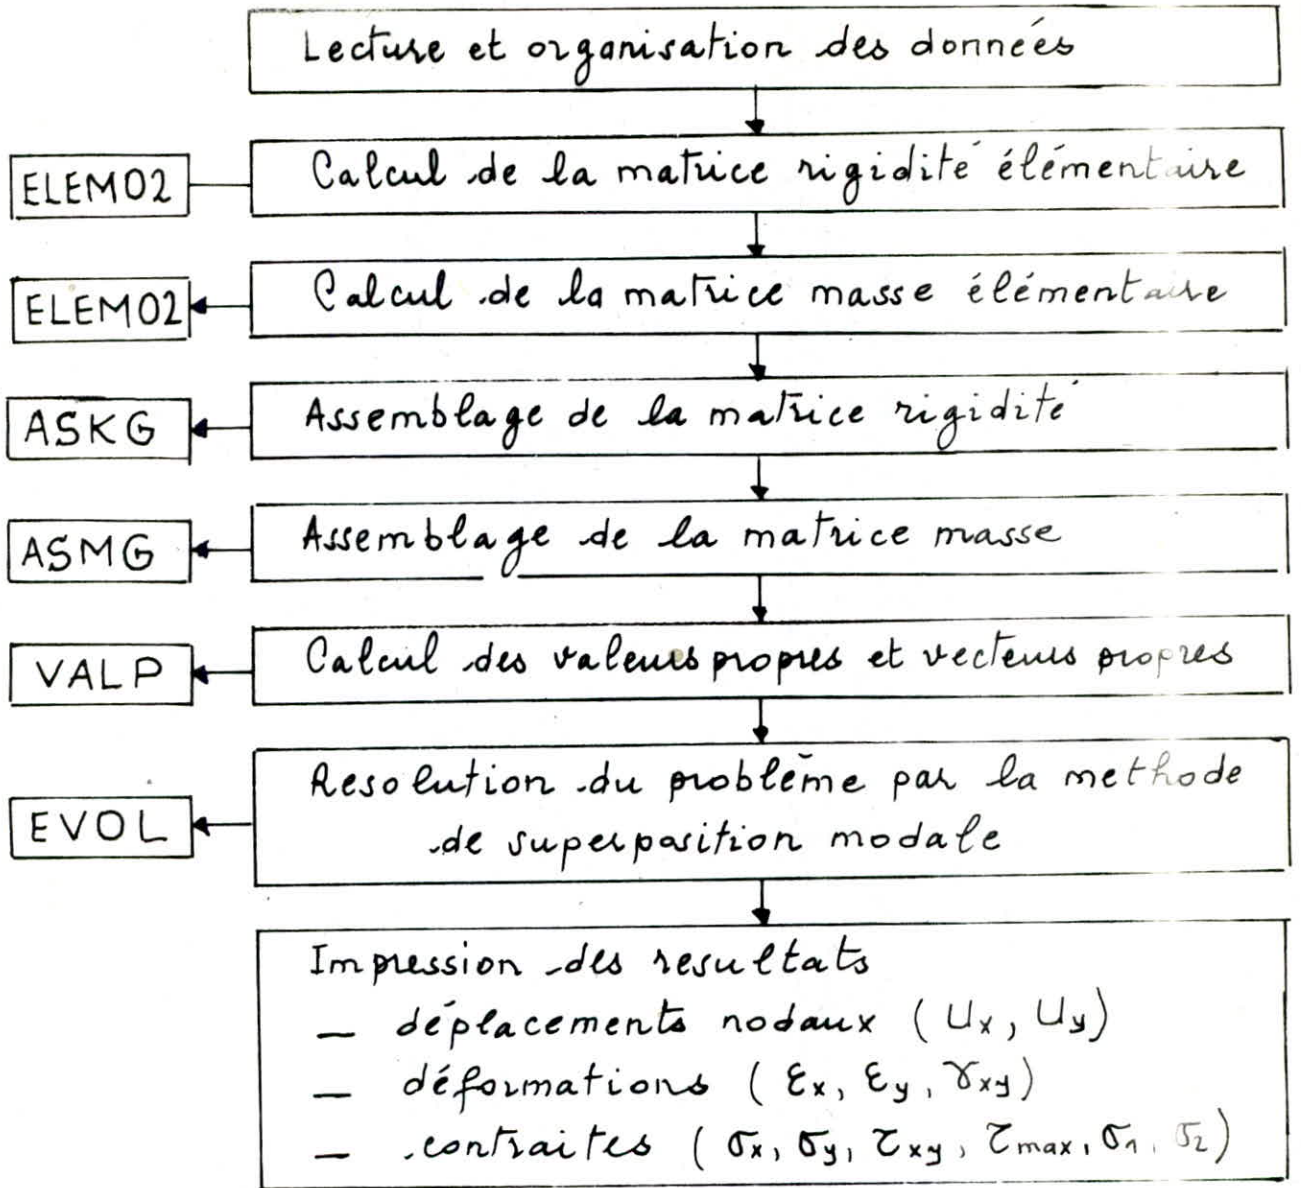 Lecture et organisation des données
ELEM02
Calcul de la matrice rigidité élémentaire
ELEM02
Calcul de la matrice masse élémentaire
ASKG
Assemblage de la matrice rigidité
ASMG
Assemblage de la matrice masse
VALP
Calcul des valeurs propres et vecteurs propres
Resolution du problème par la methode
EVOL
de superposition modale
Impression des resultats
— déplacements nodaux (Ux, Uy)
— déformations (εx, εy, γxy)
— contraites (σx, σy, τxy, τmax, σ1, σ2)